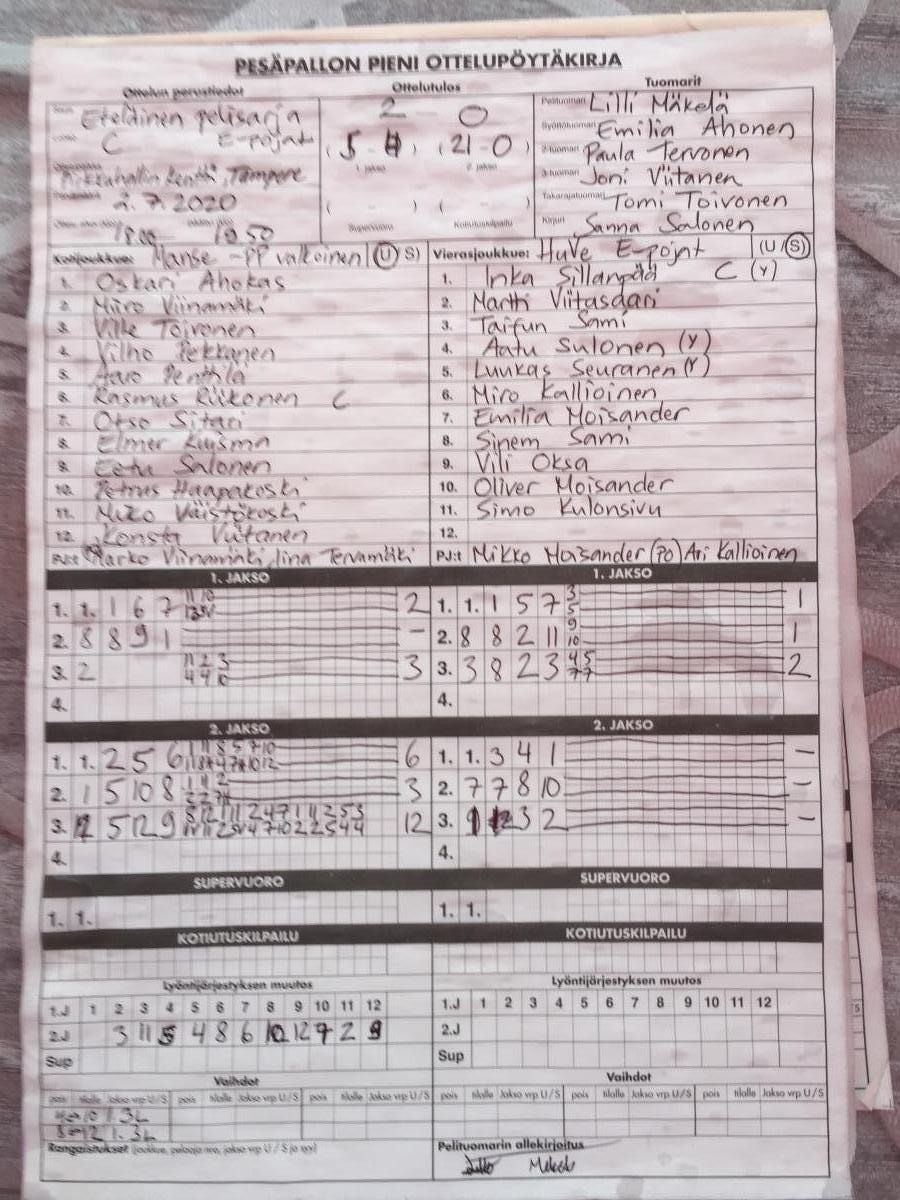 PESÄPALLON PIENI OTTELUPÖYTÄKIRJA
Ottelun perustiedot Ottelutulos Tuomarit
Eteläinen pelisarja 2 0 Pelituomari Lilli Mäkelä
C E-pojat (5 - 4) (21 - 0) Syöttötuomari Emilia Ahonen
1. jakso 2. jakso 2-tuomari Paula Tervonen
Pirkkahallin kenttä, Tampere 3-tuomari Joni Viitanen
2.7.2020 ( - ) ( - ) Takarajatuomari Tomi Toivonen
18.00 19.50 Supervuoro Kotiutuskilpailu Kirjuri Sanna Salonen
Kotijoukkue: Manse -PP valkoinen (U/S) Vierasjoukkue: HuVe E-pojat (U/S)
1. Oskari Ahokas 1. Inka Sillanpää C (Y)
2. Miiro Viinamäki 2. Martti Viitasaari
3. Ville Toivonen 3. Taifun Sami
4. Vilho Pekkanen 4. Aatu Sulonen (Y)
5. Aaro Penttilä 5. Luukas Seuranen (Y)
6. Rasmus Riikonen C 6. Miro Kallioinen
7. Otso Sitari 7. Emilia Moisander
8. Elmer Kuisma 8. Sinem Sami
9. Eetu Salonen 9. Vili Oksa
10. Petrus Haapakoski 10. Oliver Moisander
11. Miko Väistökoski 11. Simo Kulonsivu
12. Konsta Viitanen 12.
PJ:t Marko Viinamäki, Iina Tervamäki PJ:t Mikko Moisander (PO) Ari Kallioinen
1. JAKSO 1. JAKSO
1. 1. 1 6 7 2 1. 1. 1 5 7 3 5 1
2. 8 8 9 1 - 2. 8 8 2 11 9 10 1
3. 2 11 2 3 4 4 10 3 3. 3 8 2 3 4 5 7 7 2
4. 4.
2. JAKSO 2. JAKSO
1. 1. 2 5 6 6 1. 1. 3 4 1 -
2. 1 5 10 8 3 2. 7 7 8 10 -
3. 5 12 9 12 3. 3 2 -
4. 4.
SUPERVUORO SUPERVUORO
1. 1. 1. 1.
KOTIUTUSKILPAILU KOTIUTUSKILPAILU
Lyöntijärjestyksen muutos Lyöntijärjestyksen muutos
1.J 1 2 3 4 5 6 7 8 9 10 11 12 1.J 1 2 3 4 5 6 7 8 9 10 11 12
2.J 3 11 5 4 8 6 10 12 7 2 9 2.J
Sup Sup
Vaihdot Vaihdot
pois tilalle Jakso vrp U/S pois tilalle Jakso vrp U/S pois tilalle Jakso vrp U/S pois tilalle Jakso vrp U/S pois tilalle Jakso vrp U/S pois tilalle Jakso vrp U/S
10 1. 3L
12 1. 3L
Rangaistukset (joukkue, pelaaja nro, jakso vrp U/S ja syy) Pelituomarin allekirjoitus